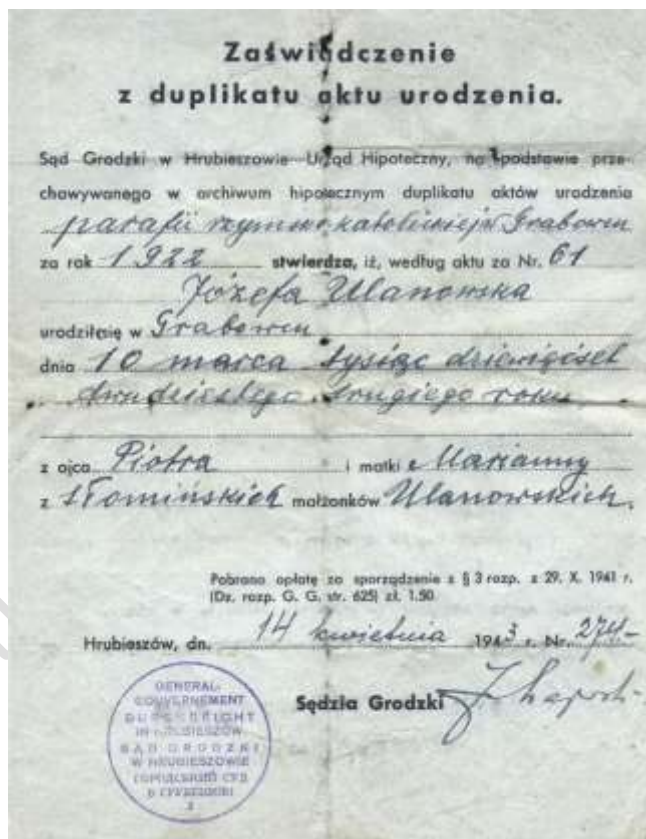 Zaświadczenie
z duplikatu aktu urodzenia.
Sąd Grodzki w Hrubieszowie—Urząd Hipoteczny, na podstawie prze-
chowywanego w archiwum hipotecznym duplikatu aktów urodzenia
parafii rzymsko-katolickiej w Grabowcu
za rok 1922 stwierdza, iż, według aktu za Nr. 61
Józefa Ulanowska
urodziła się w Grabowcu
dnia 10 marca tysiąc dziewięćset
dwudziestego drugiego roku
z ojca Piotra i matki Marianny
z Słomińskich małżonków Ulanowskich.
Pobrano opłatę za sporządzenie z § 3 rozp. z 29. X. 1941 r.
(Dz. rozp. G. G. str. 625) zł. 1.50.
Hrubieszów, dn. 14 kwietnia 1943 r. Nr. 274
Sędzia Grodzki
GENERAL-
GOUVERNEMENT
BURGGERICHT
IN HRUBIESZÓW
SĄD GRODZKI
W HRUBIESZOWIE